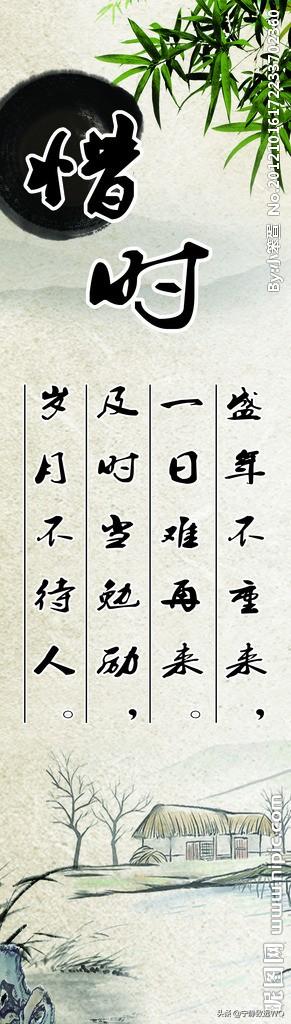 惜时
盛年不重来，
一日难再来。
及时当勉励，
岁月不待人。
By:小笨盾 No.20121016172233702360
昵图网 www.nipic.com
头条 @宁静致远WQ